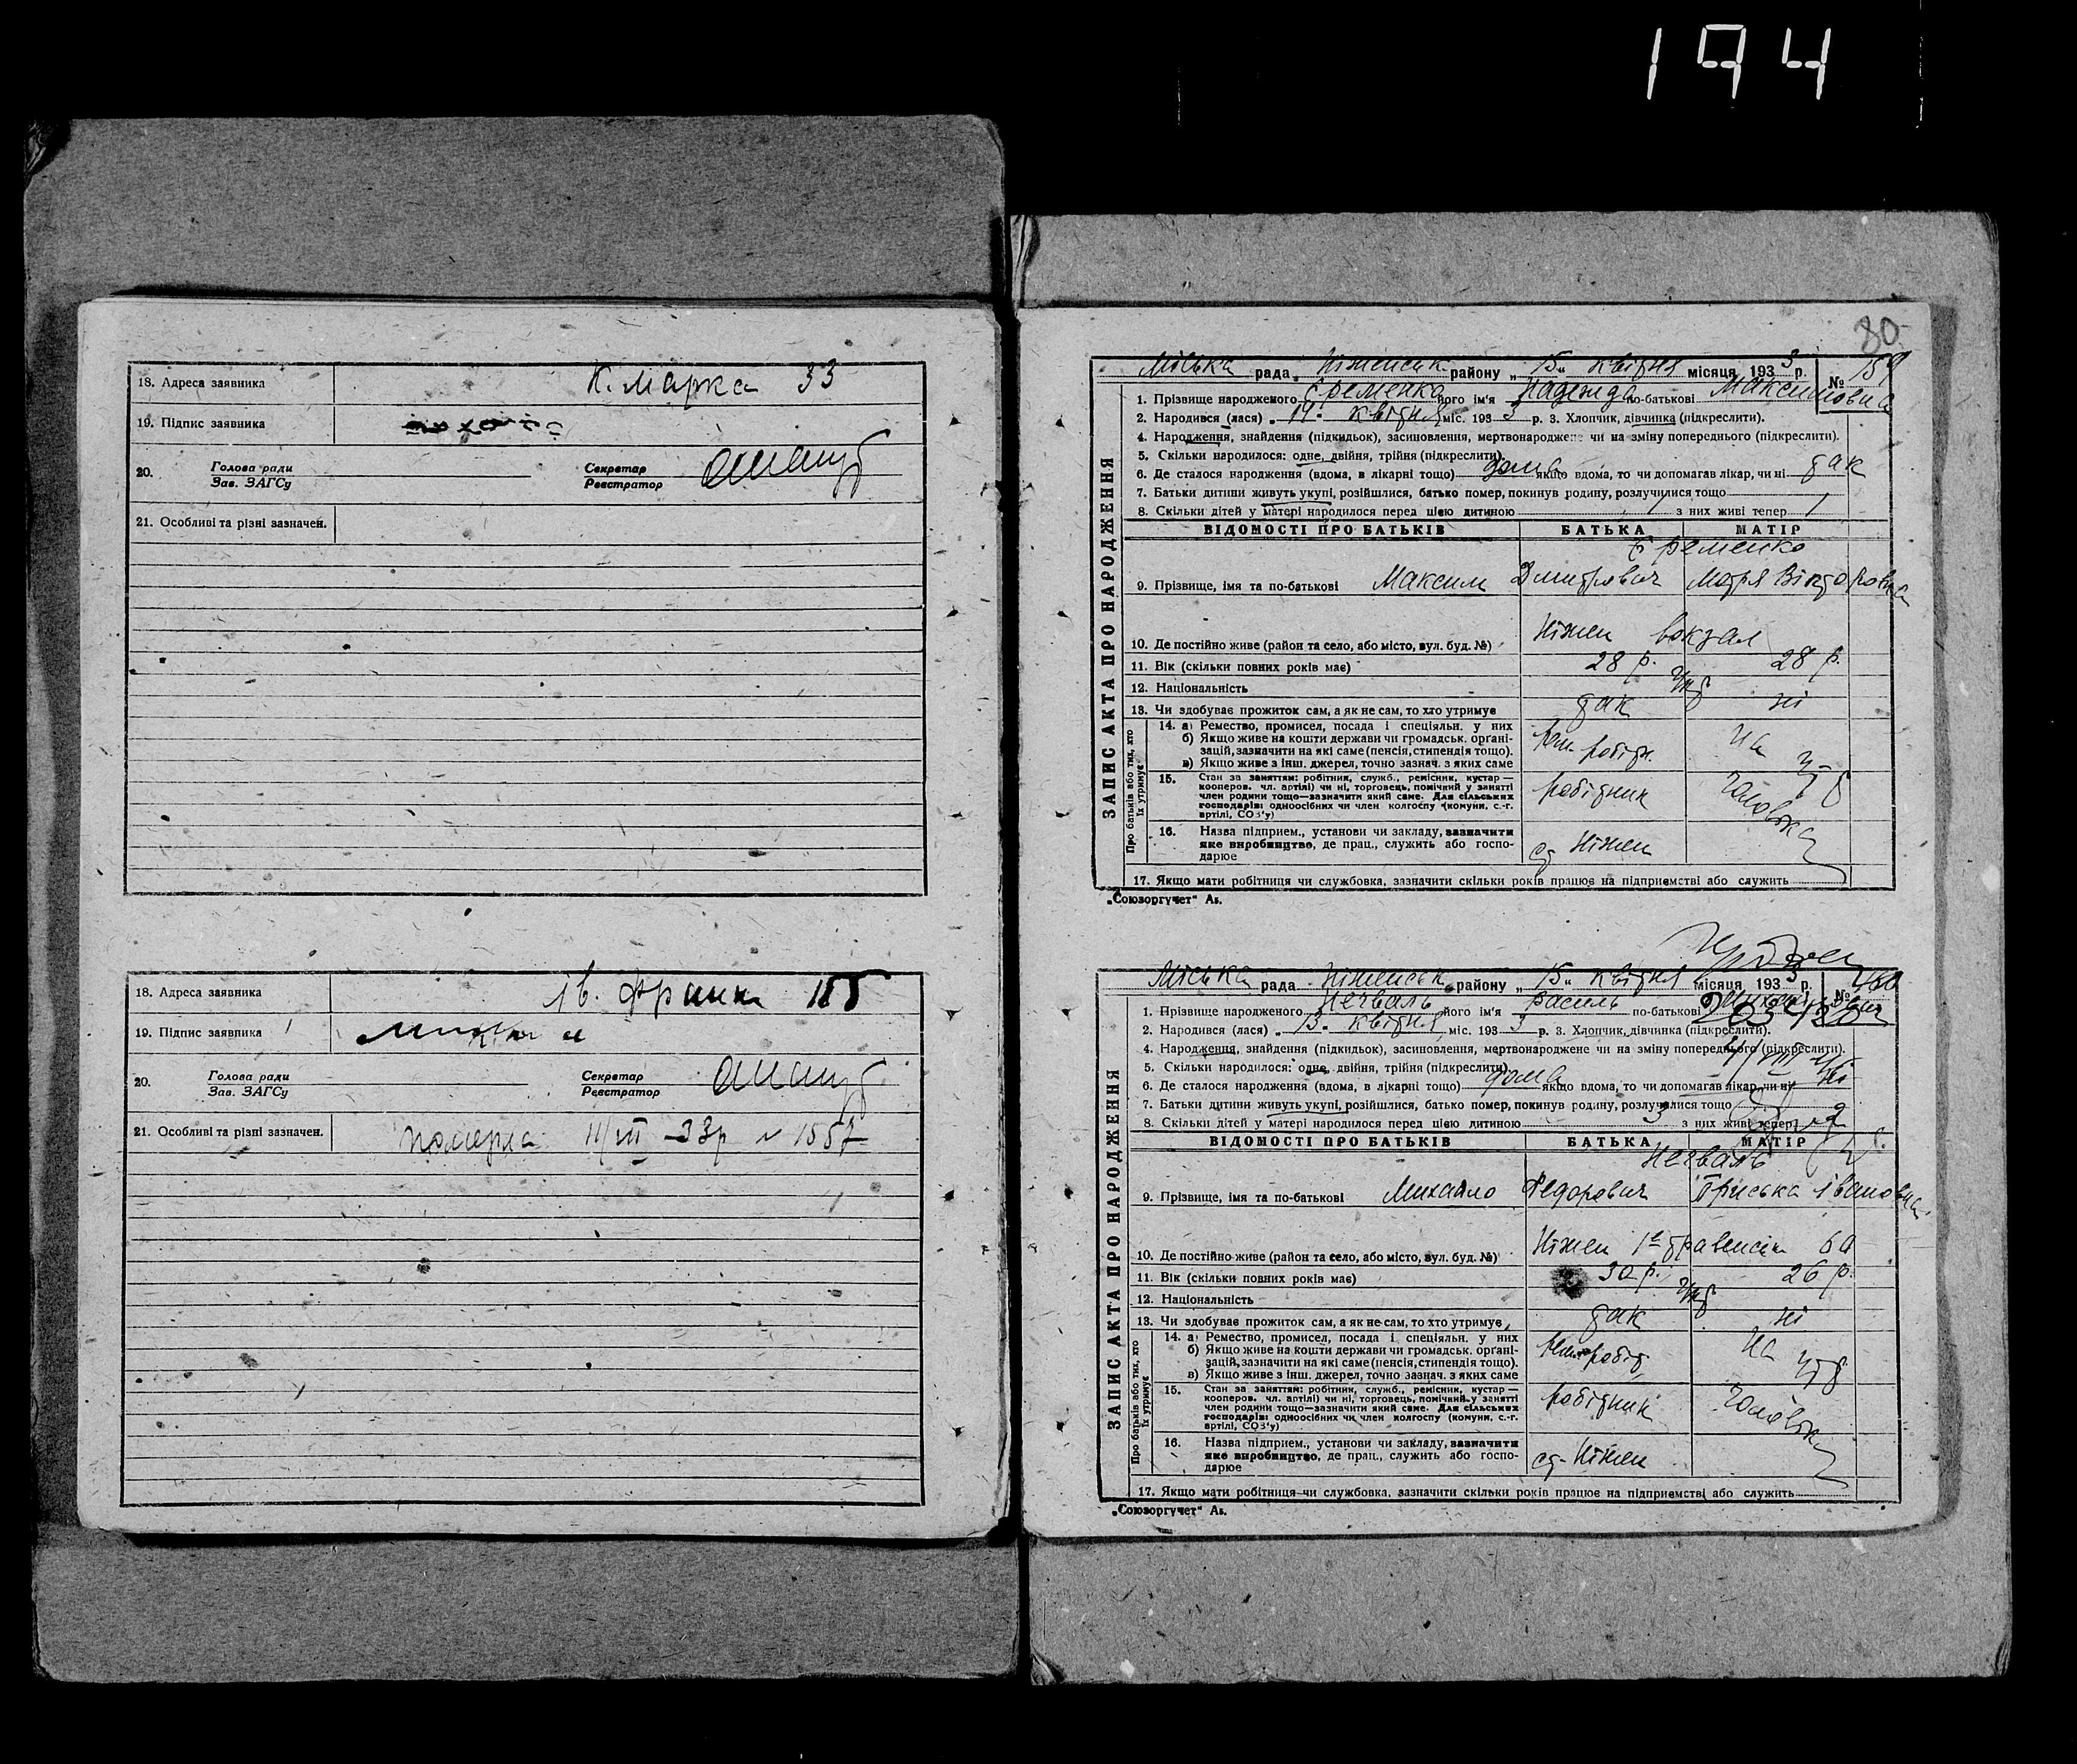 194
18. Адреса заявника К. Маркса 33
19. Підпис заявника
20. Голова ради Зав. ЗАГСу Секретар Реєстратор
21. Особливі та різні зазначен.
18. Адреса заявника Ів. Франка 155
19. Підпис заявника
20. Голова ради Зав. ЗАГСу Секретар Реєстратор
21. Особливі та різні зазначен. померла 11/VII-33р № 1557
80
ЗАПИС АКТА ПРО НАРОДЖЕННЯ
Міська рада Ніженськ району „15“ квітня місяця 1933 р. № 159
1. Прізвище народженого Єременко його ім'я Надежда по-батькові Максимовна
2. Народився (лася) „14“ квітня міс. 1933 р. 3. Хлопчик, дівчинка (підкреслити).
4. Народження, знайдення (підкидьок), засиновлення, мертвонароджене чи на зміну попереднього (підкреслити).
5. Скільки народилося: одне, двійня, трійня (підкреслити).
6. Де сталося народження (вдома, в лікарні тощо) дома якщо вдома, то чи допомагав лікар, чи ні так
7. Батьки дитини живуть укупі, розійшлися, батько помер, покинув родину, розлучилися тощо
8. Скільки дітей у матері народилося перед цією дитиною 1 з них живі тепер 1
ВІДОМОСТІ ПРО БАТЬКІВ БАТЬКА МАТІР
Єременко
9. Прізвище, імя та по-батькові Максим Дмитрович Мотря Вікторовна
10. Де постійно живе (район та село, або місто, вул. буд. №) Ніжен вокзал
11. Вік (скільки повних років має) 28 р. 28 р.
12. Національність укр
13. Чи здобуває прожиток сам, а як не сам, то хто утримує так ні
Про батьків або тих, хто їх утримує
14. а) Ремество, промисел, посада і спеціяльн. у них
б) Якщо живе на кошти держави чи громадськ. орґані-
зацій, зазначити на які саме (пенсія, стипендія тощо).
в) Якщо живе з інш. джерел, точно зазнач. з яких саме
рем. робітн. на ут
15. Стан за заняттям: робітник, служб., ремісник, кустар —
кооперов. чл. артілі) чи ні, торговець, помічний у занятті
член родини тощо—зазначити який саме. Для сільських
господарів: одноосібних чи член колгоспу (комуни, с.-г.
артілі, СОЗ'у)
робітник чоловіка
16. Назва підприєм., установи чи закладу, зазначити
яке виробництво, де прац., служить або госпо-
дарює
ст Ніжен
17. Якщо мати робітниця чи службовка, зазначити скільки років працює на підприємстві або служить
„Союзоргучет“ Ак.
ЗАПИС АКТА ПРО НАРОДЖЕННЯ
Міська рада Ніженськ району „15“ квітня місяця 1933 р. № 160
1. Прізвище народженого Нечваль його ім'я Василь по-батькові
2. Народився (лася) „13“ квітня міс. 1933 р. 3. Хлопчик, дівчинка (підкреслити).
4. Народження, знайдення (підкидьок), засиновлення, мертвонароджене чи на зміну попереднього (підкреслити).
5. Скільки народилося: одне, двійня, трійня (підкреслити).
6. Де сталося народження (вдома, в лікарні тощо) дома якщо вдома, то чи допомагав лікар, чи ні ні
7. Батьки дитини живуть укупі, розійшлися, батько помер, покинув родину, розлучилися тощо
8. Скільки дітей у матері народилося перед цією дитиною 3 з них живі тепер 2
ВІДОМОСТІ ПРО БАТЬКІВ БАТЬКА МАТІР
Нечваль
9. Прізвище, імя та по-батькові Михайло Федорович Пріська Івановна
10. Де постійно живе (район та село, або місто, вул. буд. №) Ніжен
11. Вік (скільки повних років має) 30 р. 26 р.
12. Національність укр
13. Чи здобуває прожиток сам, а як не сам, то хто утримує так ні
Про батьків або тих, хто їх утримує
14. а) Ремество, промисел, посада і спеціяльн. у них
б) Якщо живе на кошти держави чи громадськ. орґані-
зацій, зазначити на які саме (пенсія, стипендія тощо).
в) Якщо живе з інш. джерел, точно зазнач. з яких саме
рем. робіт. на ут
15. Стан за заняттям: робітник, служб., ремісник, кустар —
кооперов. чл. артілі) чи ні, торговець, помічний у занятті
член родини тощо—зазначити який саме. Для сільських
господарів: одноосібних чи член колгоспу (комуни, с.-г.
артілі, СОЗ'у)
робітник чоловіка
16. Назва підприєм., установи чи закладу, зазначити
яке виробництво, де прац., служить або госпо-
дарює
ст. Ніжен
17. Якщо мати робітниця чи службовка, зазначити скільки років працює на підприємстві або служить
„Союзоргучет“ Ак.